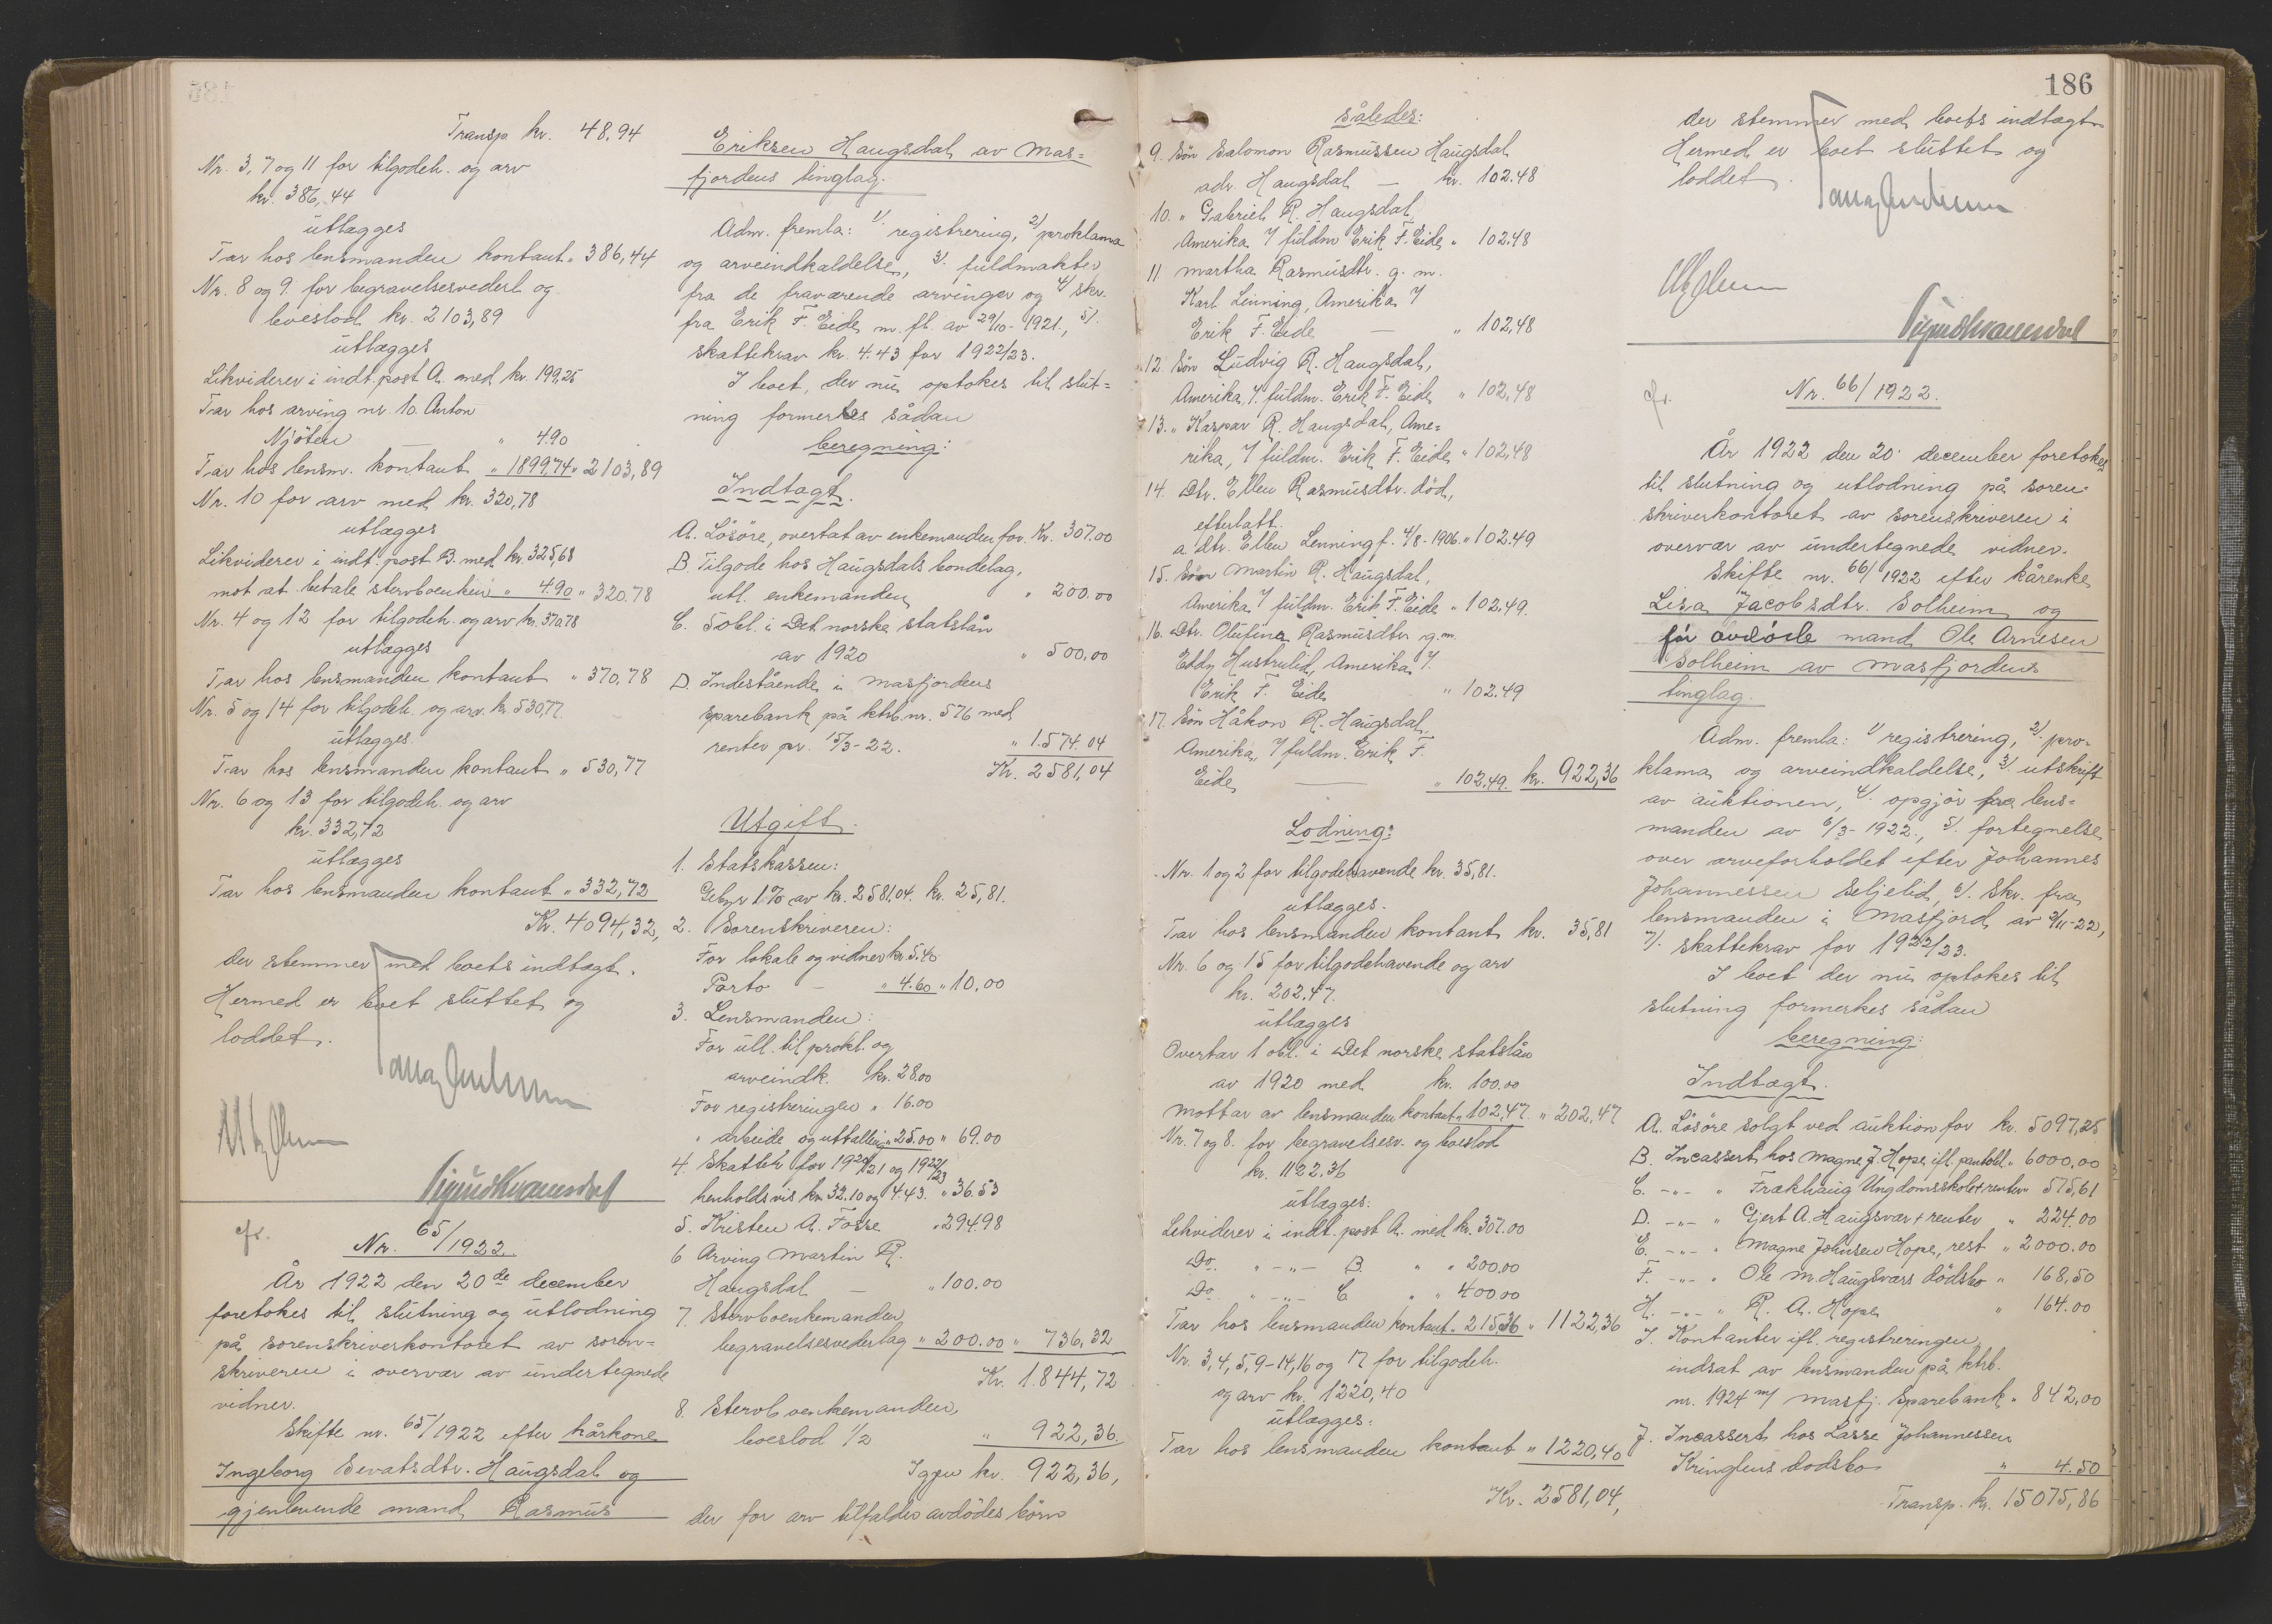 Transp kr. 48,94
Nr. 3, 7 og 11 for tilgodeh. og arv
kr. 386,44
utlægges
Tar hos lensmanden kontant " 386,44
Nr. 8 og 9 for begravelsesvederl og
boeslod kr. 2103,89
utlægges
Likviderer i indt. post A. med kr. 199,25
Tar hos arving nr. 10. Anton
Njöten — " 4.90
Tar hos lensm. kontant " 1899,74 " 2103,89
Nr. 10 for arv med kr. 320,78
utlægges
Likviderer i indt. post B. med kr. 325,68
mot at betale stervboenken " 4.90 " 320.78
Nr. 4 og 12 for tilgodeh. og arv kr. 370,78
utlægges
Tar hos lensmanden kontant " 370,78
Nr. 5 og 14 for tilgodeh. og arv. kr. 530,77.
utlægges.
Tar hos lensmanden kontant " 530,77
Nr. 6 og 13 for tilgodeh. og arv
kr. 332,72
utlægges
Tar hos lensmanden kontant " 332,72
Kr. 4094,32,
der stemmer med boets indtægt.
Hermed er boet sluttet og
loddet.
cfr.
Nr. 65/1922.
År 1922 den 20de december
foretokes til slutning og utlodning
på sorenskriverkontoret av soren=
skriveren i overvær av undertegnede
vidner.
Skifte nr. 65/1922 efter kårkone
Ingeborg Sevatsdtr. Haugsdal og
gjenlevende mand Rasmus
Eriksen Haugsdal av Mas=
fjordens tinglag.
Adm. fremla: 1/. registrering, 2/ proklama
og arveindkaldelse, 3/. fuldmakter
fra de fraværende arvinger og 4/ skr.
fra Erik F. Eide m. fl. av 29/10-1921., 5/.
skattekrav kr. 4.43 for 1922/23.
I boet, der nu optokes til slut=
ning formerkes sådan
beregning:
Indtægt.
A. Lösöre, overtat av enkemanden for. Kr. 307.00
B. Tilgode hos Haugsdals bondelag,
utl. enkemanden " 200.00
C. 5 obl. i Det norske statslån
av 1920 " 500,00
D. Indestående i Masfjordens
sparebank på ktrb. nr. 576 med
renter pr. 15/3-22. " 1.574.04
Kr. 2581,04
Utgift.
1. Statskassen:
Gebyr 1% av kr. 2581,04. kr. 25,81.
2. Sorenskriveren:
For lokale og vidner kr. 5.40
Porto — " 4.60 " 10,00
3. Lensmanden:
For utl. til prokl. og
arveindk. kr. 28.00
For registreringen " 16.00
" arbeide og uttælling " 25.00 " 69.00
4. Skatteh for 1920/21 og 1922/23
henholdsvis kr. 32.10 og 4.43. " 36.53
5. Kristen A. Fosse " 294.98
6 Arving Martin R.
Haugsdal — " 100.00
7. Stervboenkemanden
begravelsesvederlag " 200.00 " 736,32
Kr. 1.844,72
8. Stervboenkemanden,
boeslod 1/2 " 922,36.
Igjen kr. 922,36,
der for arv tilfalder avdödes börn
186
således:
9. Sön Salomon Rasmussen Haugsdal
adr. Haugsdal — kr. 102.48
10. " Gabriel R. Haugsdal
Amerika 7/ fuldm Erik F. Eide " 102,48
11 Martha Rasmusdtr. g. m.
Karl Lenning, Amerika 7/
Erik F. Eide — " 102,48
12. Sön Ludvig R. Haugsdal,
Amerika, 7/. fuldm. Erik F. Eide " 102,48
13. " Kaspar R. Haugsdal, Ame=
rika, 7/ fuldm. Erik F. Eide " 102,48
14. Dtr. Ellen Rasmusdtr. död,
efterlatt.
a. dtr. Ellen Lenning f. 4/8-1906. " 102.49
15. Sön Martin R. Haugsdal,
Amerika 7/ fuldm. Erik F. Eide " 102,49.
16. Dtr. Olufine Rasmusdtr g. m.
Eddy Hustrulid, Amerika 7/.
Erik F. Eide " 102.49
17. Sön Håkon R. Haugsdal,
Amerika, 7/ fuldm. Erik F.
Eide — " 102.49. kr. 922,36
Lodning:
Nr. 1 og 2 for tilgodehavende kr. 35,81.
utlægges.
Tar hos lensmanden kontant kr. 35,81
Nr. 6 og 15 for tilgodehavende og arv
kr. 202,47.
utlægges
Overtar 1 obl. i Det norske statslån
av 1920 med kr. 100.00
mottar av lensmanden kontant " 102,47. " 202,47
Nr. 7 og 8. for begravelsesv. og boeslod
kr. 1122,36
utlægges:
Lekviderer i indt. post A. med kr. 307.00
Do. " -"- B. " " 200,00
Do. " -"- C. " " 400,00
Tar hos lensmanden kontant " 215,36 " 1122,36
Nr. 3, 4, 5, 9-14, 16 og 17 for tilgodeh.
og arv kr. 1220,40
utlægges:
Tar hos lensmanden kontant " 1220,40
Kr. 2581,04,
der stemmer med boets indtægt
Hermed er boet sluttet og
loddet
cfr.
Nr. 66/1922.
År 1922 den 20. december foretokes
til slutning og utlodning på soren-
skriverkontoret av sorenskriveren i
overvær av undertegnede vidner.
Skifte nr. 66/1922 efter kårenke
Lisa Jacobsdtr. Solheim og
för avdöde mand Ole Arnesen
Solheim av Masfjordens
tinglag.
Adm. fremla: 1/ registrering, 2/. pro-
klama og arveindkaldelse, 3/. utskrift
av auktionen, 4/. opgjör fra lens=
manden av 6/3-1922., 5/. fortegnelse
over arveforholdet efter Johannes
Johannessen Seljelid, 6/. Skr. fra
lensmanden i Masfjord av 3/11-22,
7/. skattekrav for 1922/23.
I boet der nu optokes til
slutning formerkes sådan
beregning:
Indtægt.
A. Lösöre solgt ved auktion for kr. 5097,25
B. Incassert hos Magne J. Hope ifl. pantobl. " 6000,00
C. -"- " Frækhaug Ungdomsskole + renter " 575,61
D. -"- " Gjert A. Haugsvær + renter " 224.00
E. -"- " Magne Johnsen Hope, rest " 2000.00
F. -"- " Ole M. Haugsværs dödsbo " 168,50
H. -"- " R. A. Hope " 164.00
I. Kontanter ifl. registreringen,
indsat av lensmanden på ktrb.
nr. 1924 m/ Masfj. Sparebank " 842,00
J. Incassert hos Lasse Johannessen
Kringlens dödsbo " 4.50
Transp. kr. 15075,86